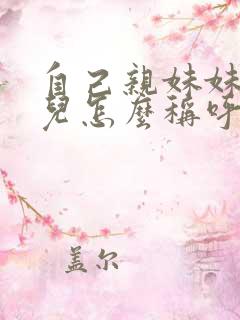 自己親妹妹
兒怎麼稱呼
盖尔